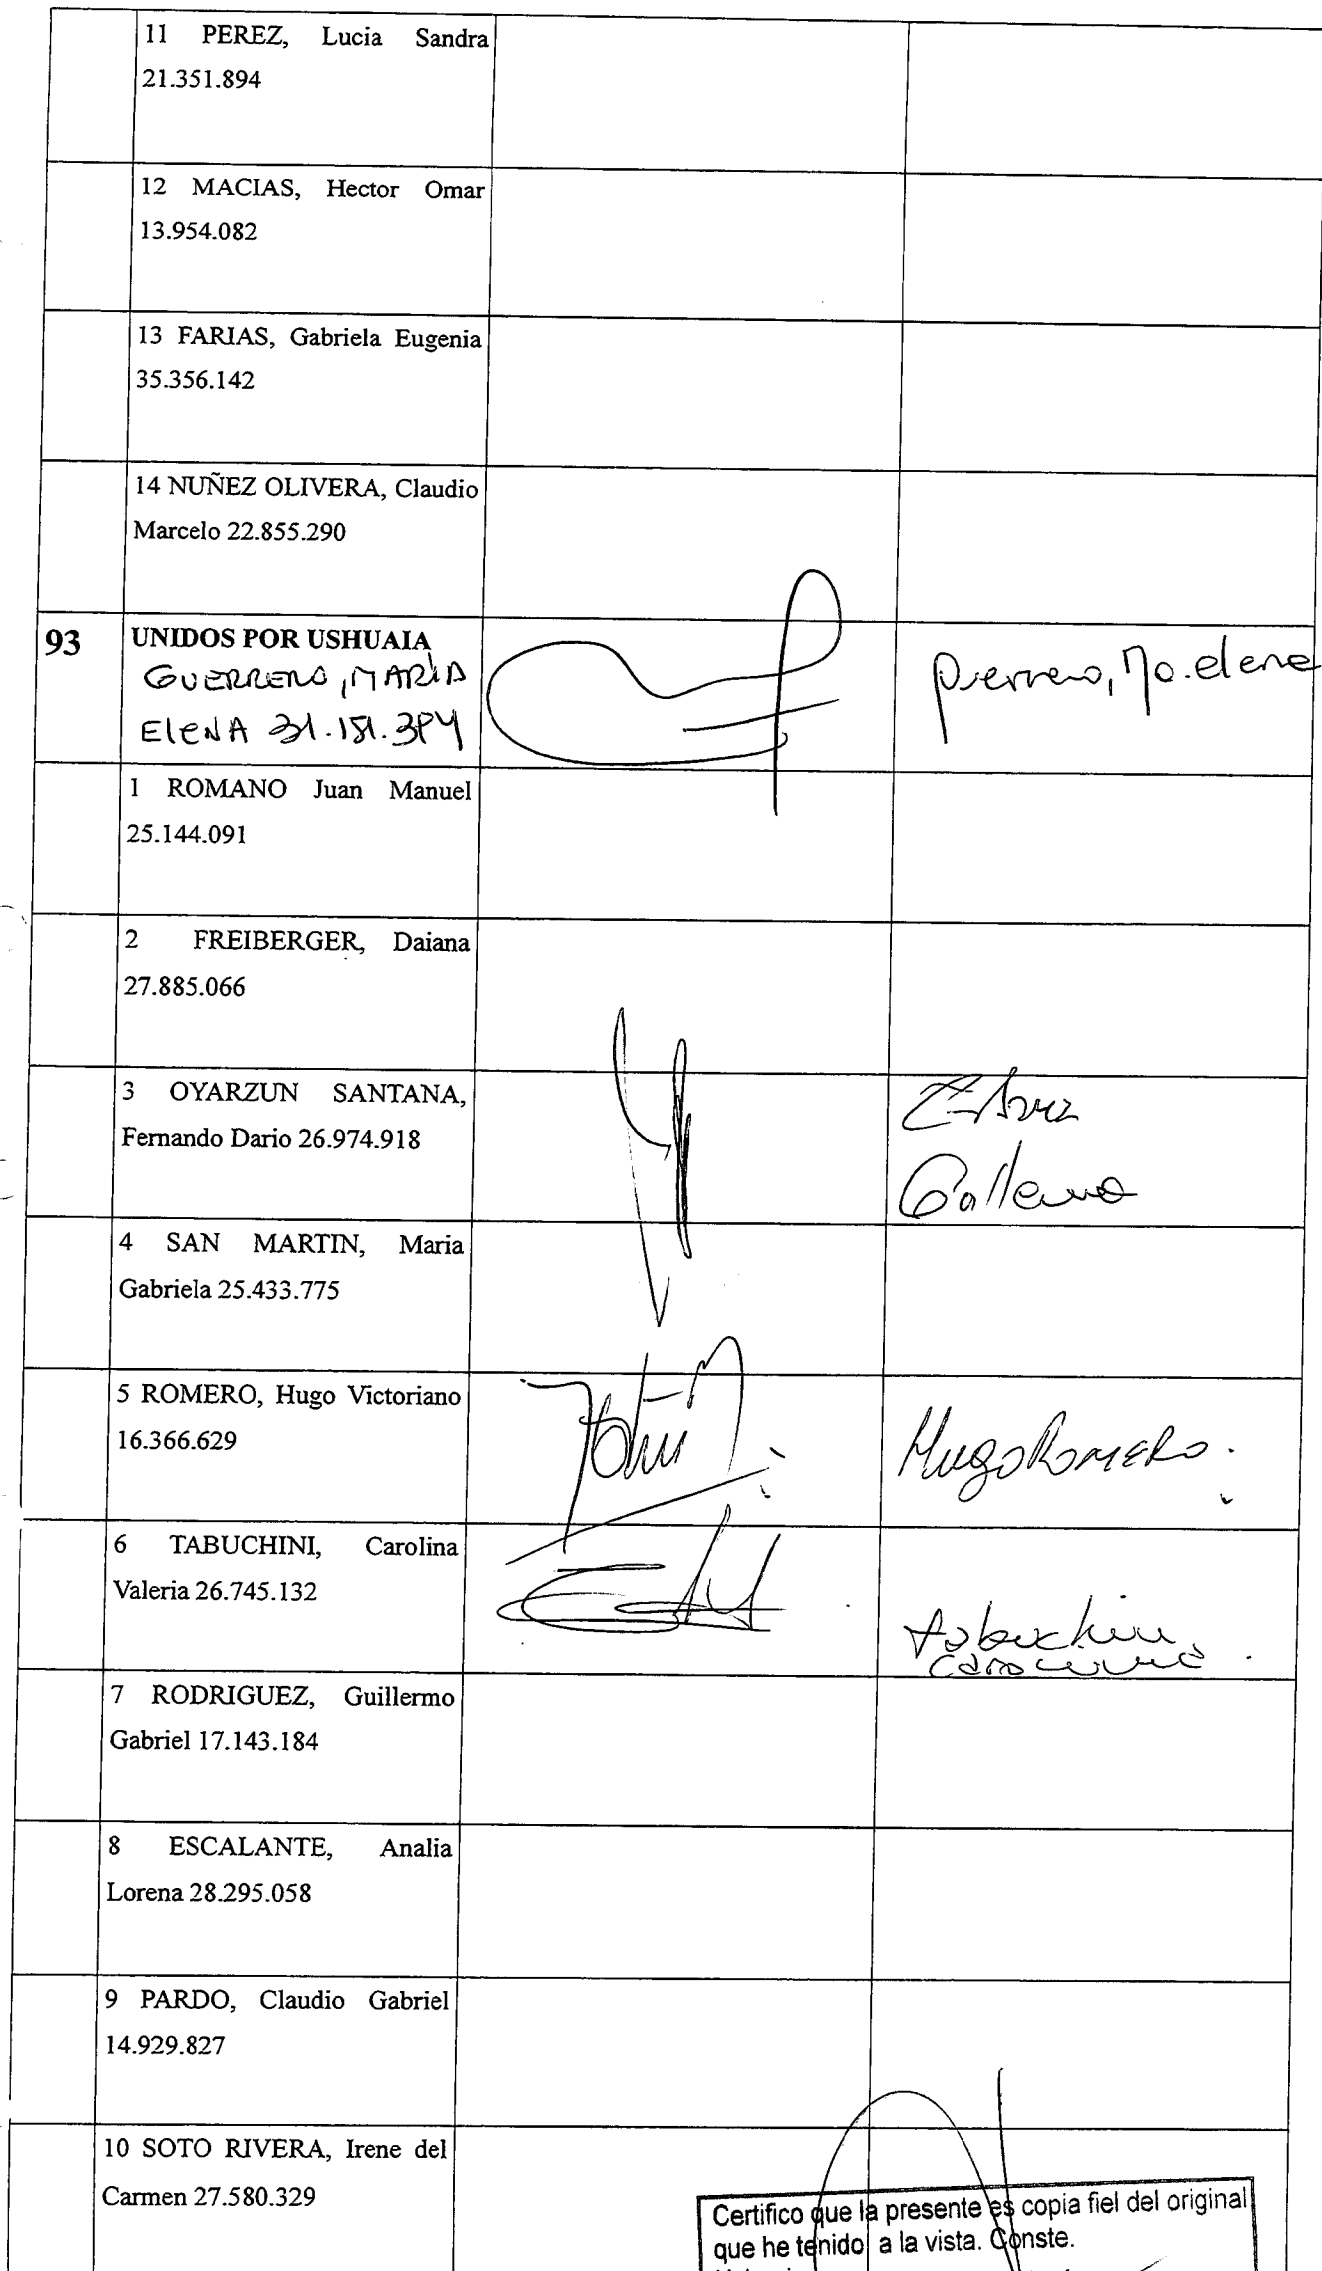 11 PEREZ, Lucia Sandra
21.351.894
12 MACIAS, Hector Omar
13.954.082
13 FARIAS, Gabriela Eugenia
35.356.142
14 NUÑEZ OLIVERA, Claudio
Marcelo 22.855.290
93 UNIDOS POR USHUAIA
GUERRERO, MARÍA
ELENA
1 ROMANO Juan Manuel
25.144.091
2 FREIBERGER, Daiana
27.885.066
3 OYARZUN SANTANA,
Fernando Dario 26.974.918
4 SAN MARTIN, Maria
Gabriela 25.433.775
5 ROMERO, Hugo Victoriano
16.366.629
Hugo ROMERO.
6 TABUCHINI, Carolina
Valeria 26.745.132
Tabuchini
Carolina
7 RODRIGUEZ, Guillermo
Gabriel 17.143.184
8 ESCALANTE, Analia
Lorena 28.295.058
9 PARDO, Claudio Gabriel
14.929.827
10 SOTO RIVERA, Irene del
Carmen 27.580.329
Certifico que la presente es copia fiel del original
que he tenido a la vista. Conste.